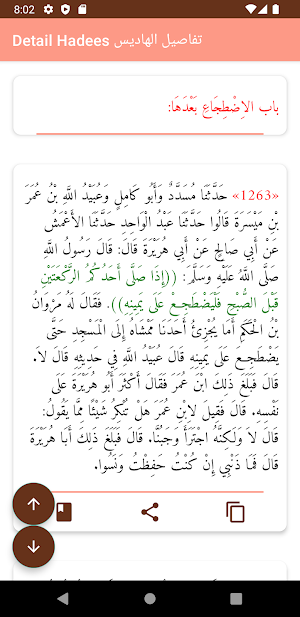 8:02
Detail Hadees تفاصيل الهاديس
باب الاِضْطِجَاعِ بَعْدَهَا:
«1263» حَدَّثَنَا مُسَدَّدٌ وَأَبُو كَامِلٍ وَعُبَيْدُ اللَّهِ بْنُ عُمَرَ
بْنِ مَيْسَرَةَ قَالُوا حَدَّثَنَا عَبْدُ الْوَاحِدِ حَدَّثَنَا الأَعْمَشُ
عَنْ أَبِي صَالِحٍ عَنْ أَبِي هُرَيْرَةَ قَالَ: قَالَ رَسُولُ اللَّهِ
صَلَّى اللَّهُ عَلَيْهِ وَسَلَّمَ: ((إِذَا صَلَّى أَحَدُكُمُ الرَّكْعَتَيْنِ
قَبْلَ الصُّبْحِ فَلْيَضْطَجِعْ عَلَى يَمِينِهِ)). فَقَالَ لَهُ مَرْوَانُ
بْنُ الْحَكَمِ أَمَا يُجْزِئُ أَحَدَنَا مَمْشَاهُ إِلَى الْمَسْجِدِ حَتَّى
يَضْطَجِعَ عَلَى يَمِينِهِ قَالَ عُبَيْدُ اللَّهِ فِي حَدِيثِهِ قَالَ لاَ.
قَالَ فَبَلَغَ ذَلِكَ ابْنَ عُمَرَ فَقَالَ أَكْثَرَ أَبُو هُرَيْرَةَ عَلَى
نَفْسِهِ. قَالَ فَقِيلَ لاِبْنِ عُمَرَ هَلْ تُنْكِرُ شَيْئًا مِمَّا يَقُولُ:
قَالَ لاَ وَلَكِنَّهُ اجْتَرَأَ وَجَبُنَّا. قَالَ فَبَلَغَ ذَلِكَ أَبَا هُرَيْرَةَ
قَالَ فَمَا ذَنْبِي إِنْ كُنْتُ حَفِظْتُ وَنَسُوا.